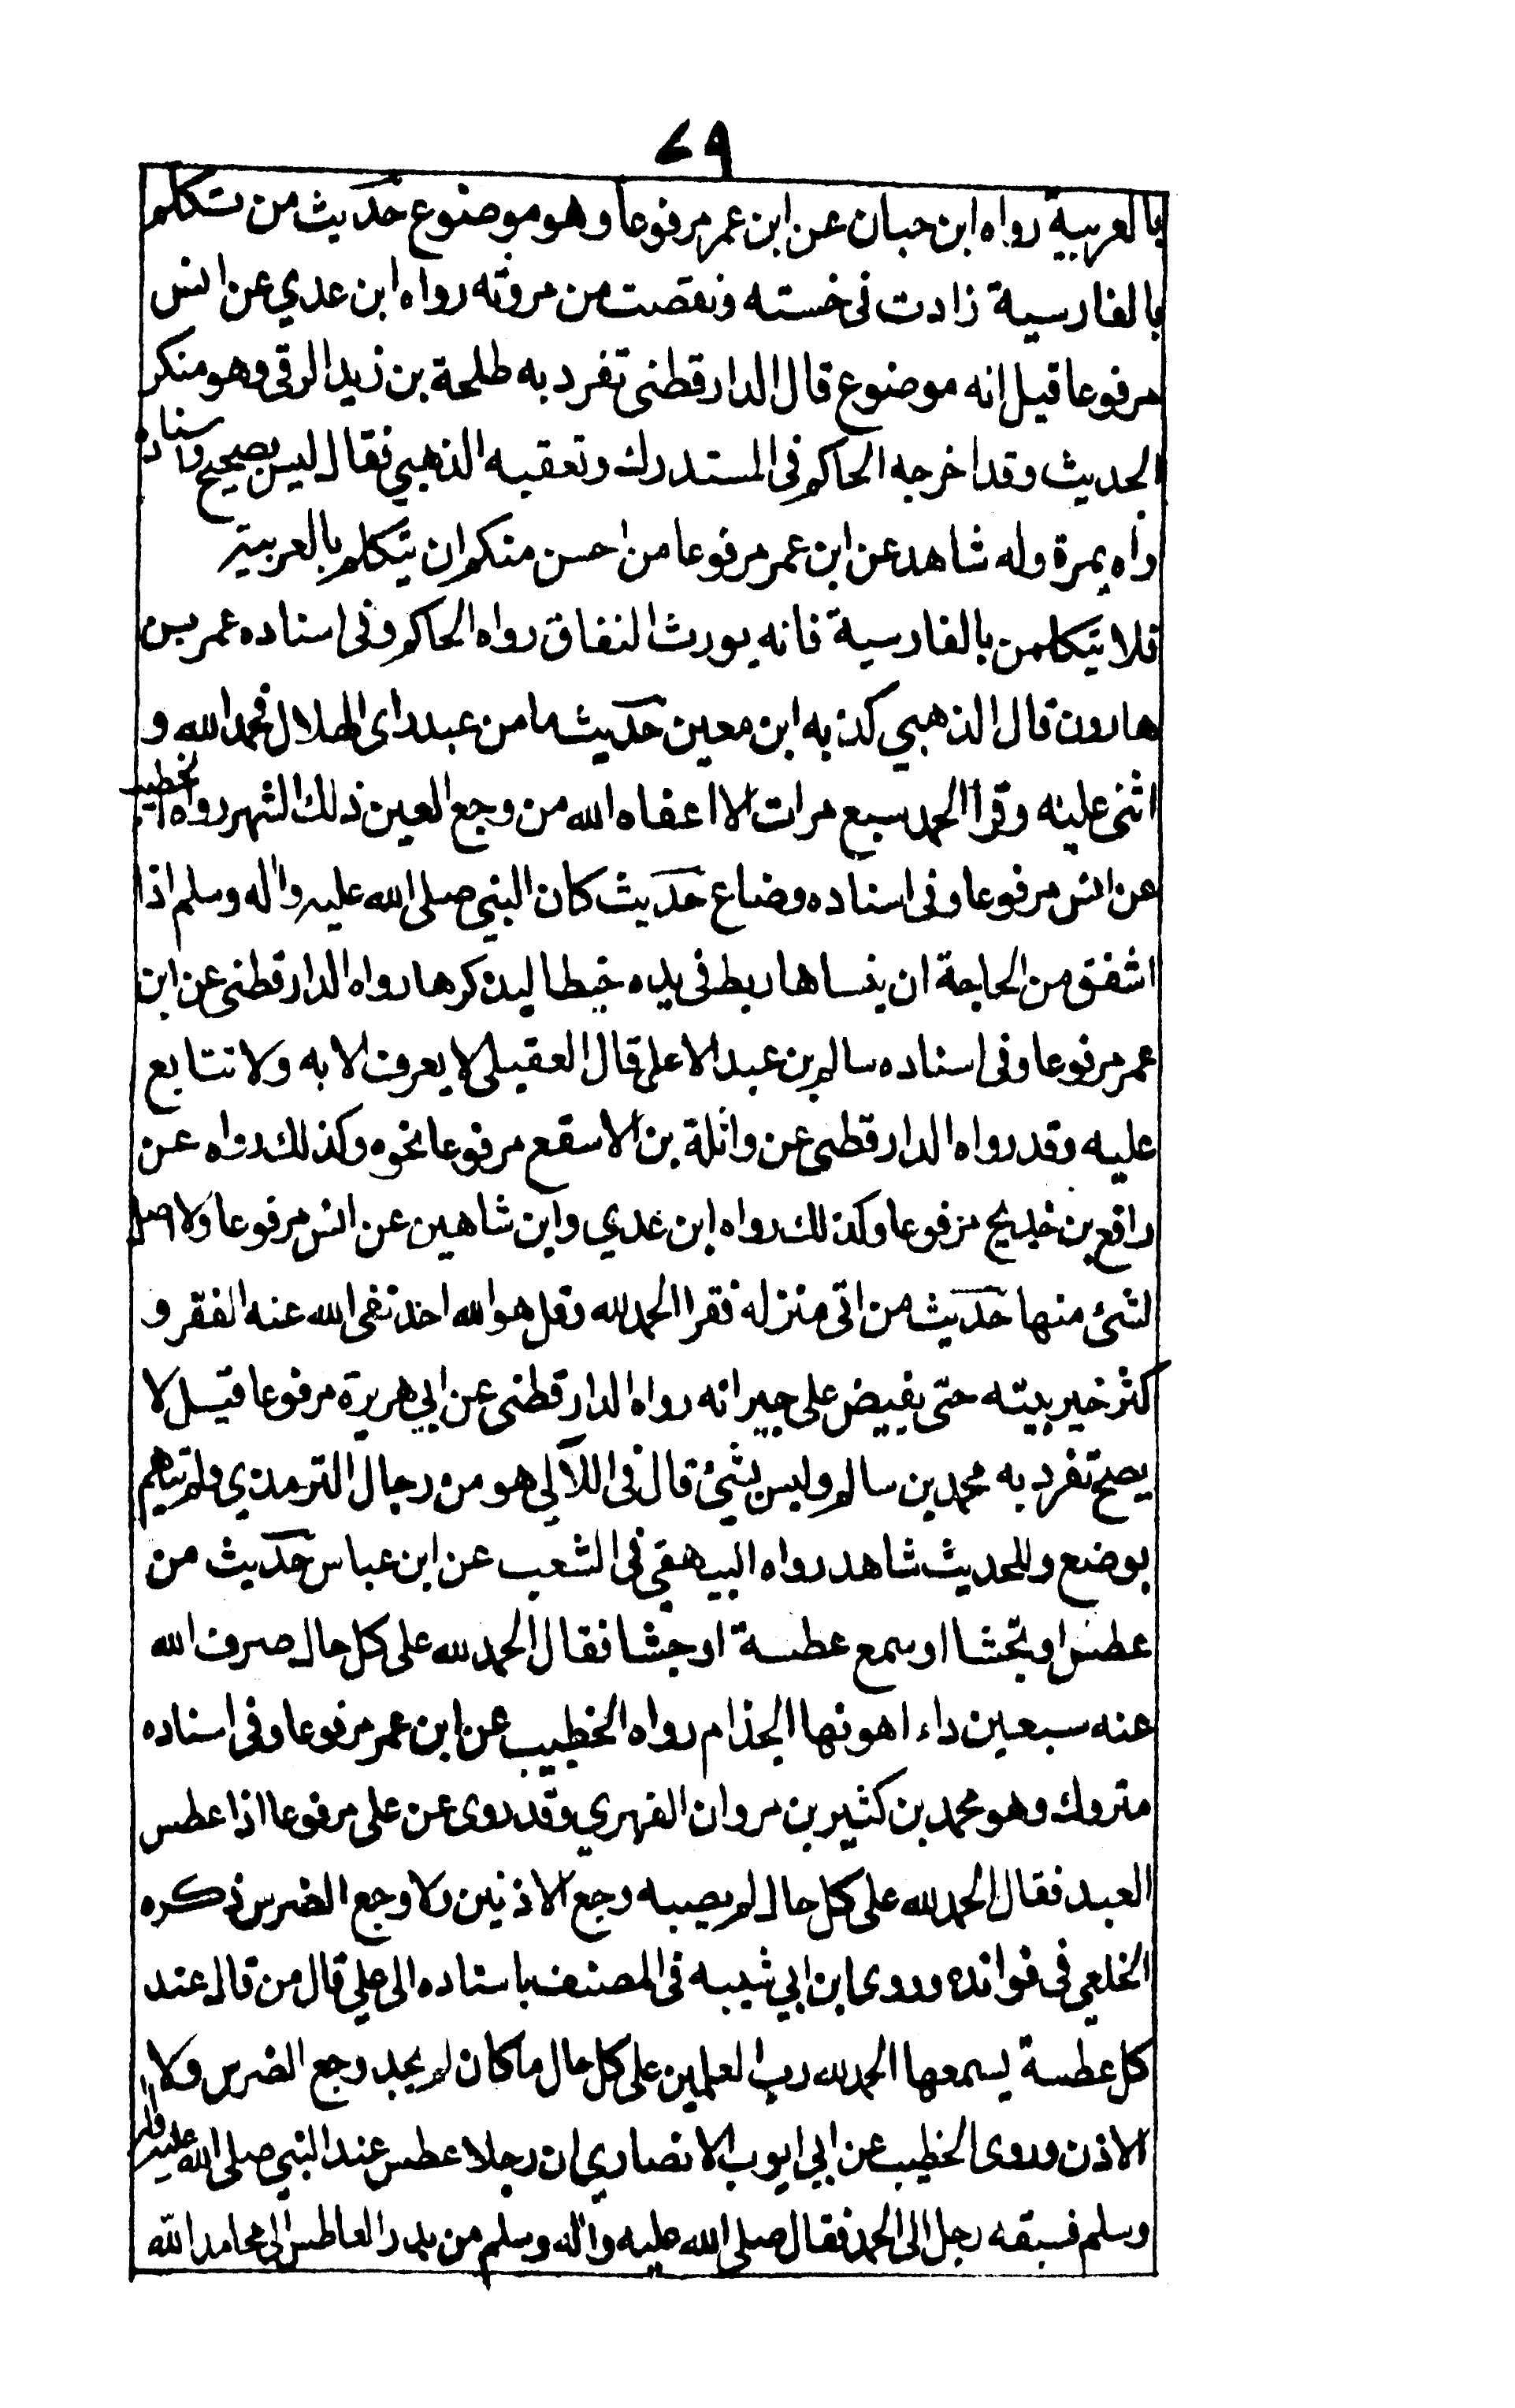 ٧٩
بالعربية رواه ابن حبان عن ابن عمر مرفوعا وهو موضوع حديث من تكلم
بالفارسية زادت فى خسته ونقصت من مروته رواه ابن عدي عن انس
مرفوعا قيل انه موضوع قال الدارقطنى تفرد به طلحة بن زيد الرقى وهو منكر
الحديث وقد اخرجه الحاكم فى المستدرك وتعقبه الذهبي فقال ليس بصحيح واسناده
واه بمرة وله شاهد عن ابن عمر مرفوعا من احسن منكم ان يتكلم بالعربية
فلا يتكلمن بالفارسية فانه يورث النفاق رواه الحاكم وفى اسناده عمر بن
هارون قال الذهبي كذبه ابن معين حديث ما من عبد راى الهلال فحمد الله و
اثنى عليه وقرا الحمد سبع مرات الا اعفاه الله من وجع العين ذلك الشهر رواه الخطيب
عن انس مرفوعا وفى اسناده وضاع حديث كان النبي صلى الله عليه واله وسلم اذا
اشفق من الحاجة ان ينساها ربط فى يده خيطا ليذكرها رواه الدارقطنى عن ابن
عمر مرفوعا وفى اسناده سالم بن عبد الاعلى قال العقيلى لا يعرف الا به ولا نتابع
عليه وقد رواه الدارقطنى عن واثلة بن الاسقع مرفوعا نحوه وكذلك رواه عن
رافع بن خديج مرفوعا وكذلك رواه ابن عدي وابن شاهين عن انس مرفوعا ولا اصل
لشئ منها حديث من اتى منزله فقرا الحمد لله وقل هو الله احد نفى الله عنه الفقر و
كثر خير بيته حتى يفيض على جيرانه رواه الدارقطنى عن ابي هريرة مرفوعا قيل لا
يصح تفرد به محمد بن سالم وليس بشئ قال فى اللآلي هو من رجال الترمذي ولم يتهم
بوضع وللحديث شاهد رواه البيهقي فى الشعب عن ابن عباس حديث من
عطس او تجشا او سمع عطسة او جشا فقال الحمد لله على كل حال صرف الله
عنه سبعين داء اهونها الجذام رواه الخطيب عن ابن عمر مرفوعا وفى اسناده
متروك وهو محمد بن كثير بن مروان الفهري وقد روى عن على مرفوعا اذا عطس
العبد فقال الحمد لله على كل حال لم يصبه وجع الاذنين ولا وجع الضرس ذكره
الخلعي فى فوائده وروى ابن ابي شيبه فى المصنف باسناده الى علي قال من قال عند
كل عطسة يسمعها الحمد لله رب العلمين على كل حال ما كان لم يجد وجع الضرس ولا
الاذن وروى الخطيب عن ابي ايوب الانصاري ان رجلا عطس عند النبي صلى الله عليه واله
وسلم فسبقه رجل الى الحمد فقال صلى الله عليه واله وسلم من بدر العاطس الى محامد الله